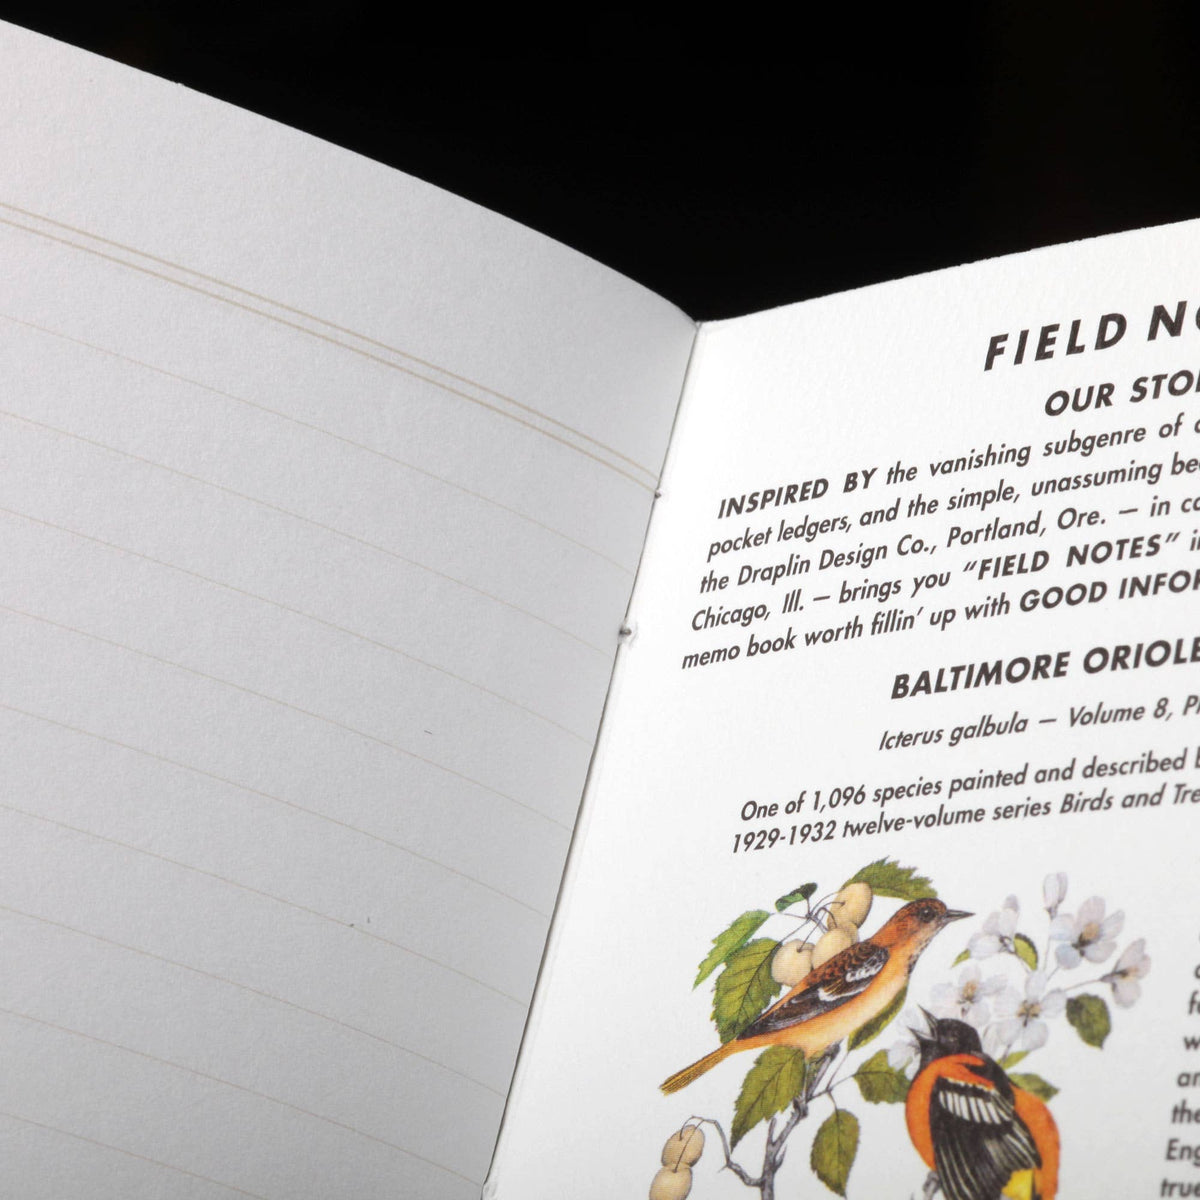 FIELD
OUR
INSPIRED BY the vanishing subgenre of
pocket ledgers, and the simple, unassuming
the Draplin Design Co., Portland, Ore. — in
Chicago, Ill. — brings you “FIELD NOTES”
memo book worth fillin’ up with GOOD
BALTIMORE ORIOLE
Icterus galbula — Volume 8,
One of 1,096 species painted and described
1929-1932 twelve-volume series Birds and